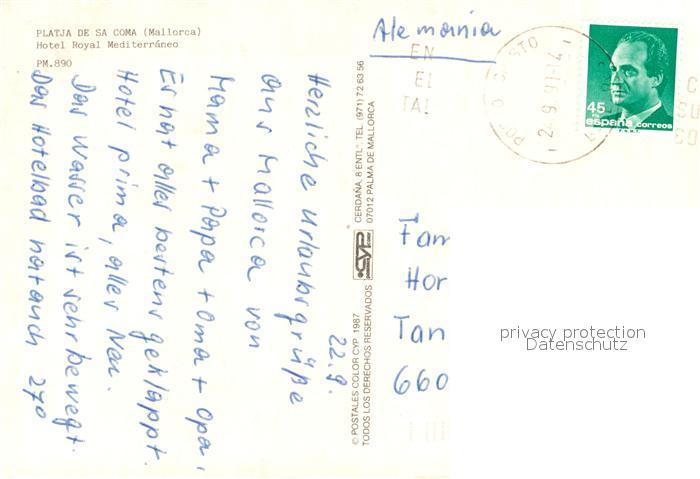 PLATJA DE SA COMA (Mallorca)
Hotel Royal Mediterráneo
PM.890
Alemania
EN
EL
TAL
2 4 9 91-14
45
españa correos
22.9.
Herzliche Urlaubsgrüße
aus Mallorca von
Mama + Papa + Oma + Opa,
Es hat alles bestens geklappt.
Hotel prima, alles neu.
Das Wasser ist sehr bewegt.
Das Hotelbad hat auch 27°
© POSTALES COLOR CYP, 1987
TODOS LOS DERECHOS RESERVADOS
CYP
CERDAÑA, 8 ENTL°. TEL. (971) 72 63 56
07012 PALMA DE MALLORCA
Fam
Hor
Tan
660
privacy protection
Datenschutz